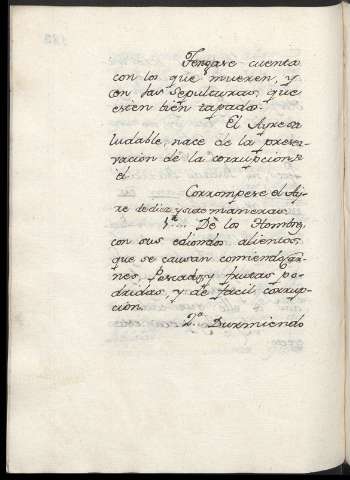 Tengase cuenta
con los que mueren, y
con las sepulturas, que
esten bien tapadas.
El Ayre sa
ludable, nace de la preser-
vacion de la corrupcion de
el.
Corrompese el Ay-
re de diez y siete maneras.
1.ª De los Hombres,
con sus ediondos alientos,
que se causan comiendo car-
nes, Pescados, y frutas po-
dridas, y de facil corrup-
cion.
2.ª Durmiendo